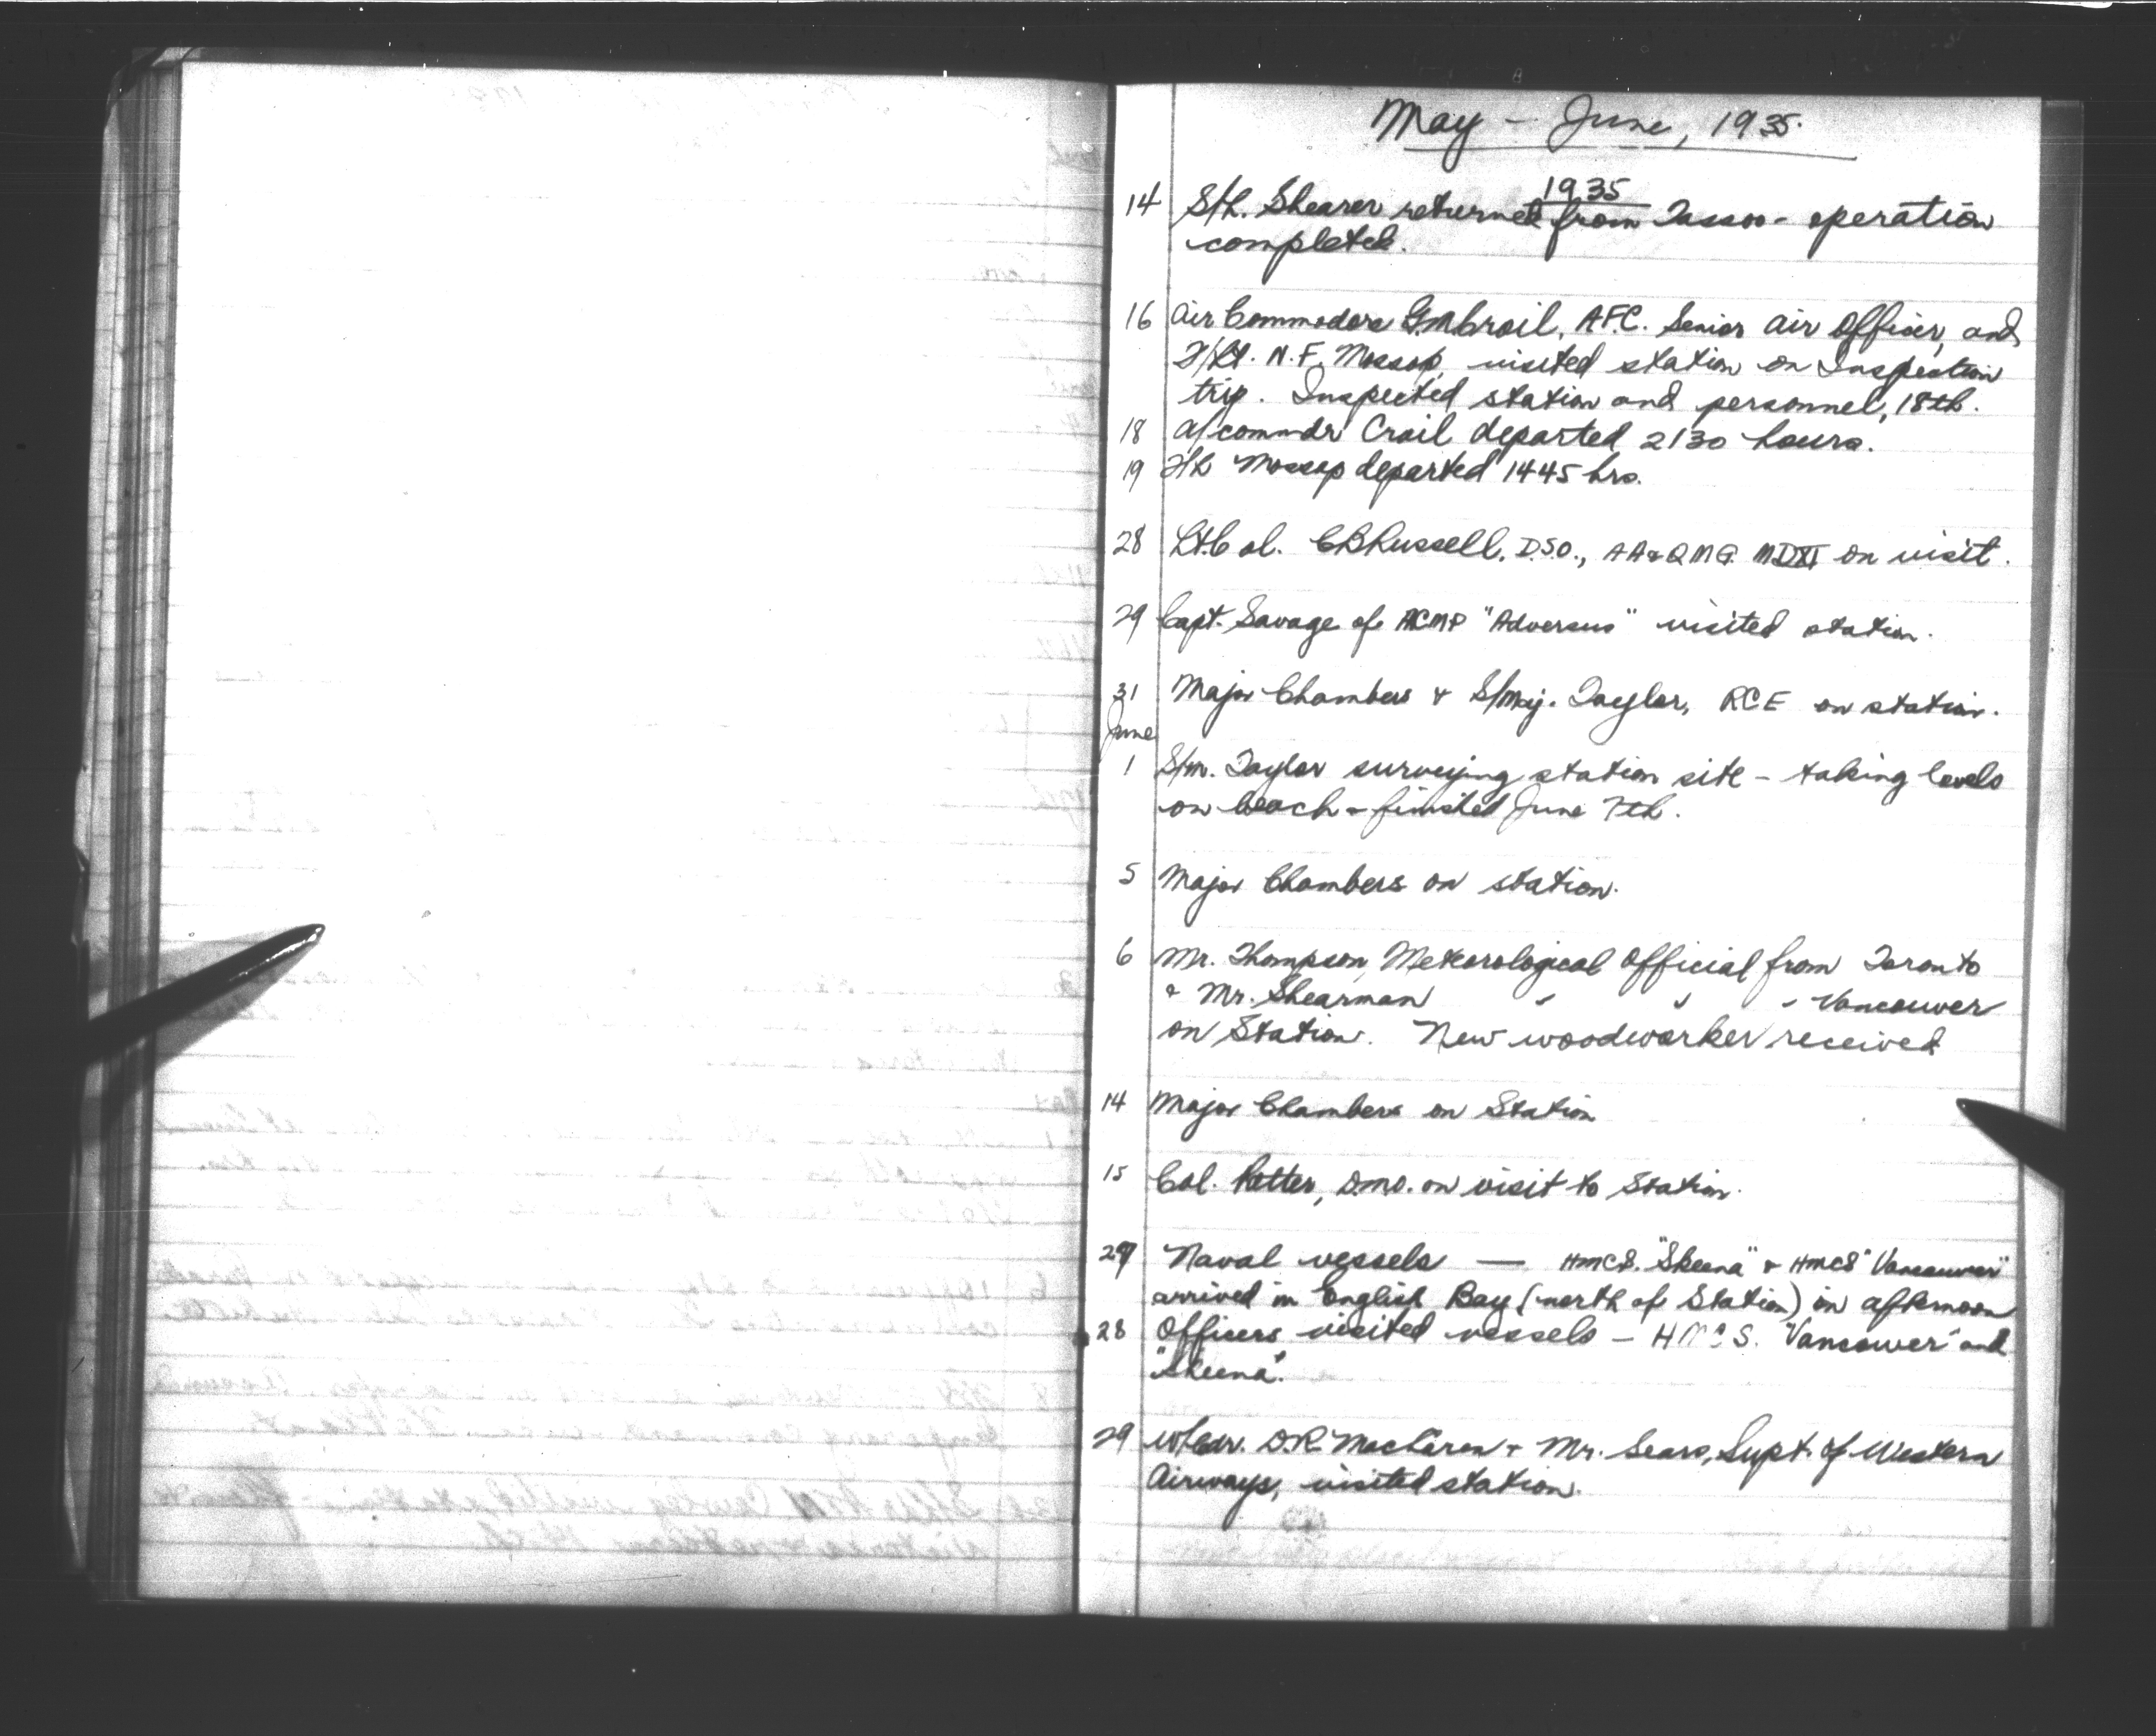 May - June, 1935.
1935
14 S/L. Shearer returned from Tassoo - operation
completed.
16 Air Commodore G.M. Croil, A.F.C. Senior Air Officer, and
F/Lt. N.F. Mossop, visited station on Inspection
trip. Inspected station and personnel, 18th.
18 A/commdr Croil departed 2130 hours.
19 F/L Mossop departed 1445 hrs.
28 Lt. Col. C B Russell, D.S.O., AA & QMG MDXI on visit.
29 Capt. Savage of RCMP "Adversus" visited station.
31 Major Chambers & S/Maj. Taylor, RCE on station.
June
1 S/m. Taylor surveying station site - taking levels
on beach - finished June 7th.
5 Major Chambers on station.
6 Mr. Thompson, Meteorological Official from Toronto
& Mr. Shearman " " " Vancouver
on Station. New woodworker received
14 Major Chambers on Station
15 Col. Potter, D.M.O. on visit to Station.
27 Naval vessels — HMCS. "Skeena" & HMCS "Vancouver"
arrived in English Bay (north of Station) in afternoon
28 Officers visited vessels - HMCS. "Vancouver" and
"Skeena".
29 W/Cdr. D.R. MacLaren & Mr. Sears, Supt. of Western
Airways, visited station.